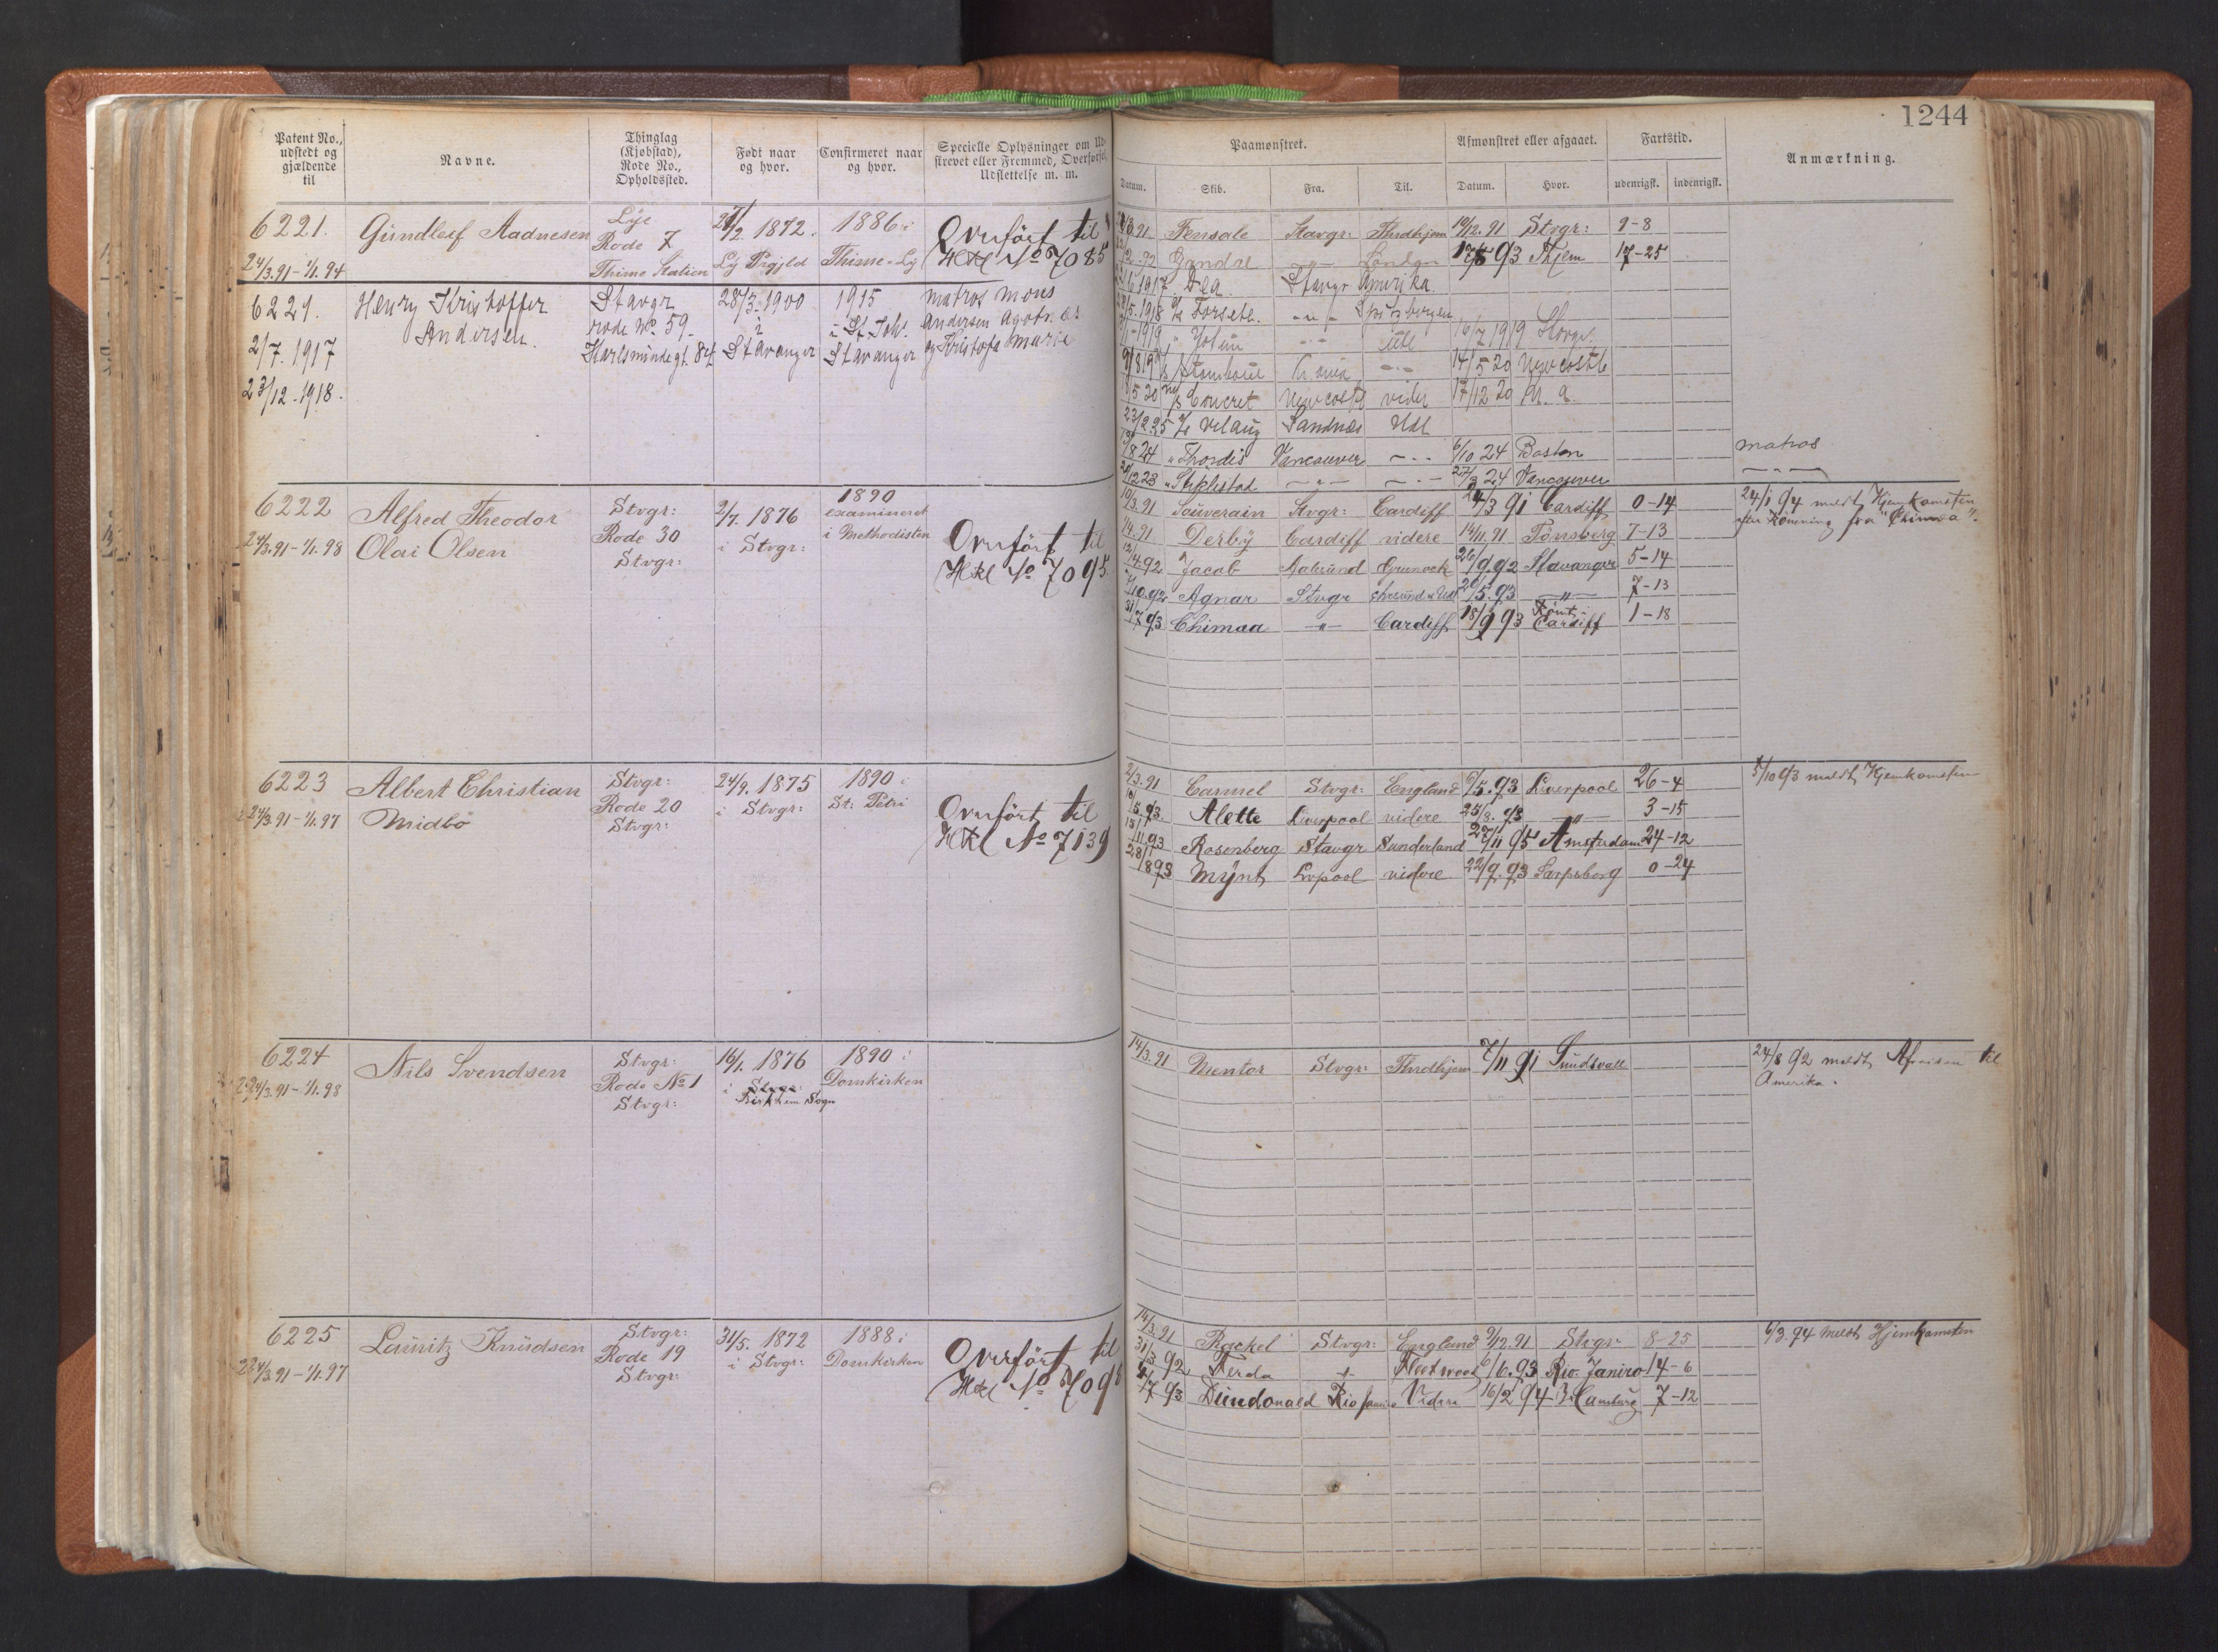 1244
Patent No., udstedt og gjældende til
Navne.
Thinglag (Kjøbstad), Rode No., Opholdssted.
Født naar og hvor.
Confirmeret naar og hvor.
Specielle Oplysninger om Ud-
strevet eller Fremmed, Overførsel,
Udslettelse m. m.
Paamønstret.
Afmønstret eller afgaaet.
Fartstid.
Anmærkning.
Datum. Skib. Fra. Til. Datum. Hvor. udenrigsk. indenrigsk.
6221.
24/3.91-1/1.94
Gündleif Aadnesen
Lye
Rode 7
Thime Station
1872.
Ly Prgjld
1886 i
Thime-Ly
Overført til
Hkl No 7085
Stavgr: Thrdhjem 10/12.91 Stvgr: 9-8
93 Thjem 17-25
6221.
2/7.1917
23/12.1918.
Henry Kristoffer
Andersen.
Stavgr
rode No. 59.
28/3.1900
i
Stavanger
1915
i St. Joh.
Stavanger
matros Mons
Andersen
og Kristofa Marie
Dea Stavgr Amerika.
Forsete -"- Spitzbergen
16/7 1919
14/5 20 Newcostle
Concret Newcostl vider 17/12 20
23/2 25 Sandnes Udl
Thordis Vancouver 6/10 24 Boston matros
Stiklestad 27/3 24 Vancouver
6222
24/3.91-1/1.98
Alfred Theodor
Olai Olsen
Stvgr:
Rode 30
Stvgr:
2/7. 1876
i Stvgr:
1890
examineret
i Methodisten
Overført til
Hkl No 7095
10/3.91 Souverain Stvgr: Cardiff 24/3 91 Cardiff 0-14
Derby Cardiff videre 14/11.91 Tønsberg 7-13
12/4.92 Jacob Aalesund Grenock 26/9.92 Stavanger 5-14
Agnar Stvgr 20/5.93 -"- 7-13
31/7 93 Chimaa -"- Cardiff 18/9 93 Rømt Cardiff 1-18
24/1 94 meldt Hjemkomsten
efter Rømning fra "Chimaa".
6223
24/3.91-1/1.97
Albert Christian
Midbö
Stvgr:
Rode 20
Stvgr:
24/9. 1875
i Stvgr:
1890 i
St. Petri
Overført til
Hkl No 7139
2/3.91 Carmel Stvgr: England 6/5.93 Liverpool 26-4
Alette Liverpool videre 25/8.93 -"- 3-15
Rosenberg Stavgr Sunderland 27/11 95 Amsterdam 24-12
28/8 93 Mynt Lvpool videre 22/9.93 Sarpsborg 0-24
5/10 93 meldt Hjemkomsten
6224
24/3.91-1/1.98
Nils Svendsen
Stvgr:
Rode No 1
Stvgr:
16/1. 1876
i Stvgr:
Sogn
1890 i
Domkirken
14/3.91 Mentor Stvgr: Thrdhjem 7/11 91 Sundsvall
24/8 92 meldt Afreisen til
Amerika.
6225
24/3.91-1/1.97
Lauritz Knudsen
Stvgr:
Rode 19
Stvgr:
31/5. 1872
i Stvgr:
1888 i
Domkirken
Overført til
Hkl No 7098
14/3.91 Rackel Stvgr: England 9/12.91 Stvgr: 8-25
31/3 92 Ferda Fleetwood 6/6.93 Rio Janiro 14-6
Dundonald Rio Janiro Videre 16/2 94 Hamburg 7-12
6/3.94 meldt Hjemkomsten